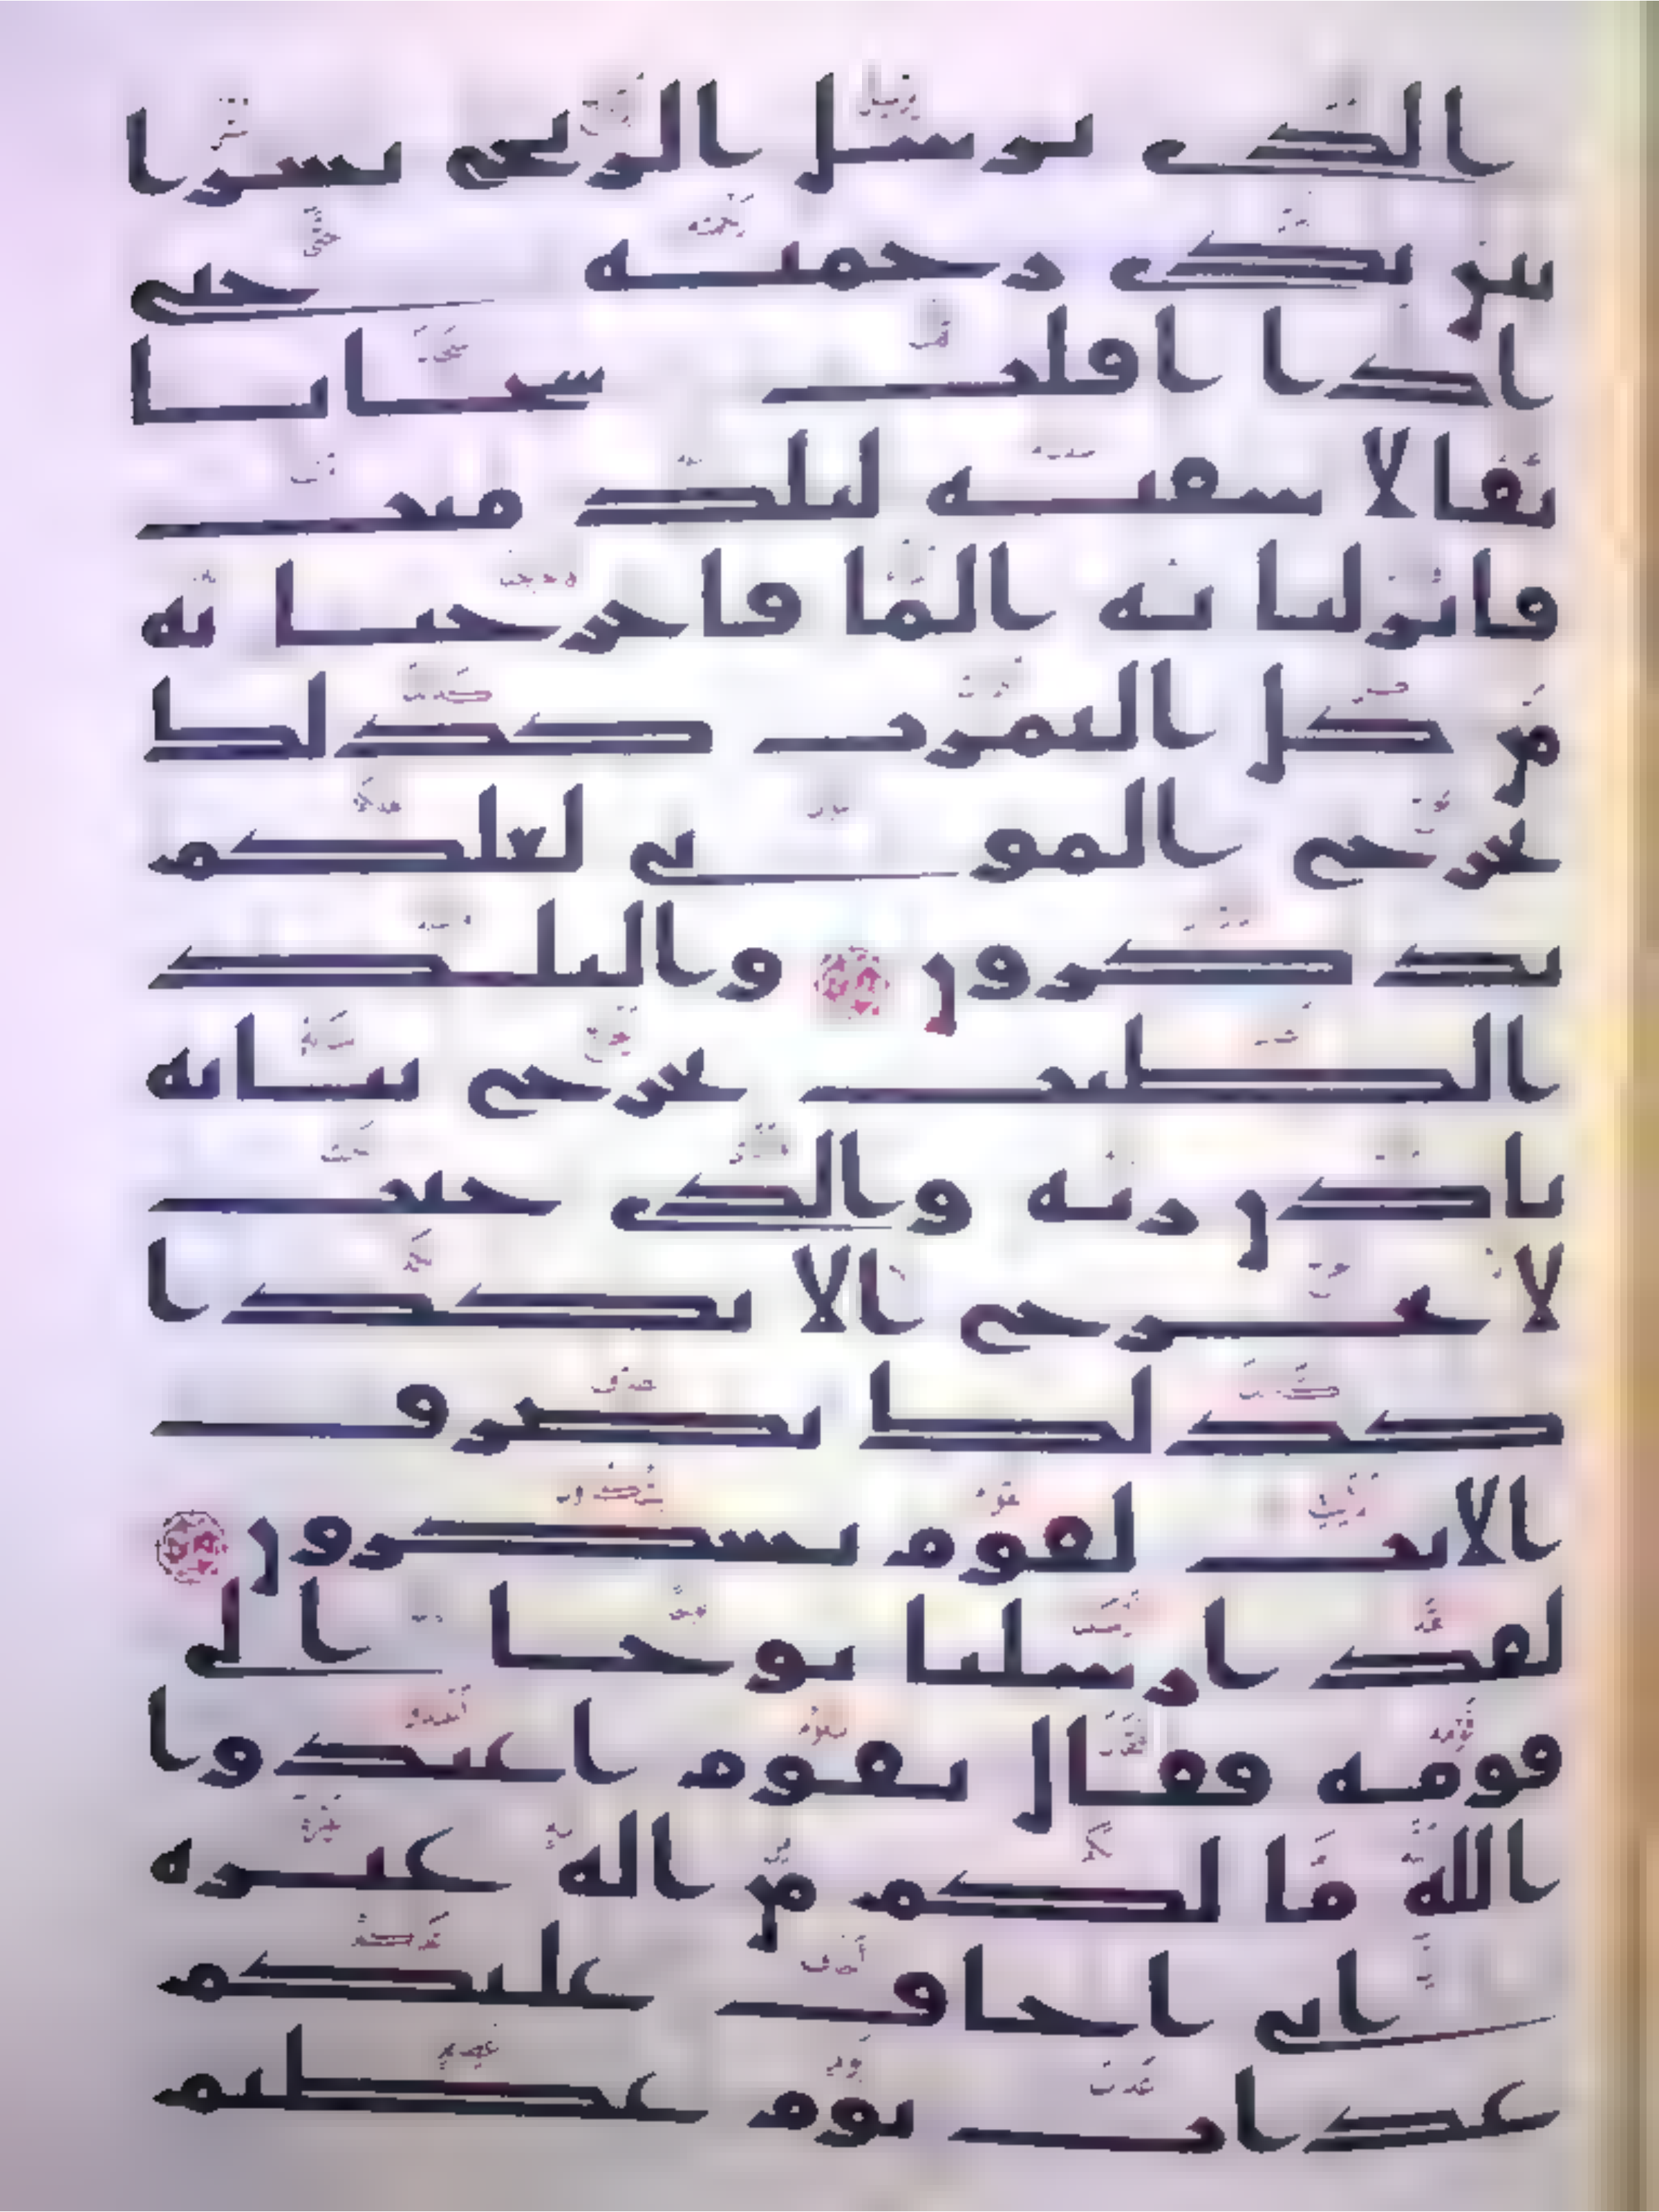 الذي يرسل الريح بشرا
بين يدي رحمته حتى
اذا اقلت سحابا
ثقالا سقنه لبلد ميت
فانزلنا به الما فاخرجنا به
من كل الثمرت كذلك
نخرج الموتى لعلكم
تذكرون والبلد
الطيب يخرج نباته
باذن ربه والذي خبث
لا يخرج الا نكدا
كذلك نصرف
الايت لقوم يشكرون
لقد ارسلنا نوحا الى
قومه فقال يقوم اعبدوا
الله ما لكم من اله غيره
اني اخاف عليكم
عذاب يوم عظيم